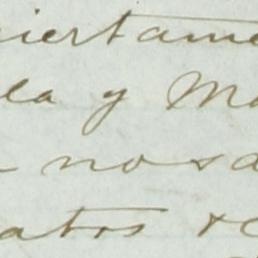 ciertame
la y Ma
nosa
atos